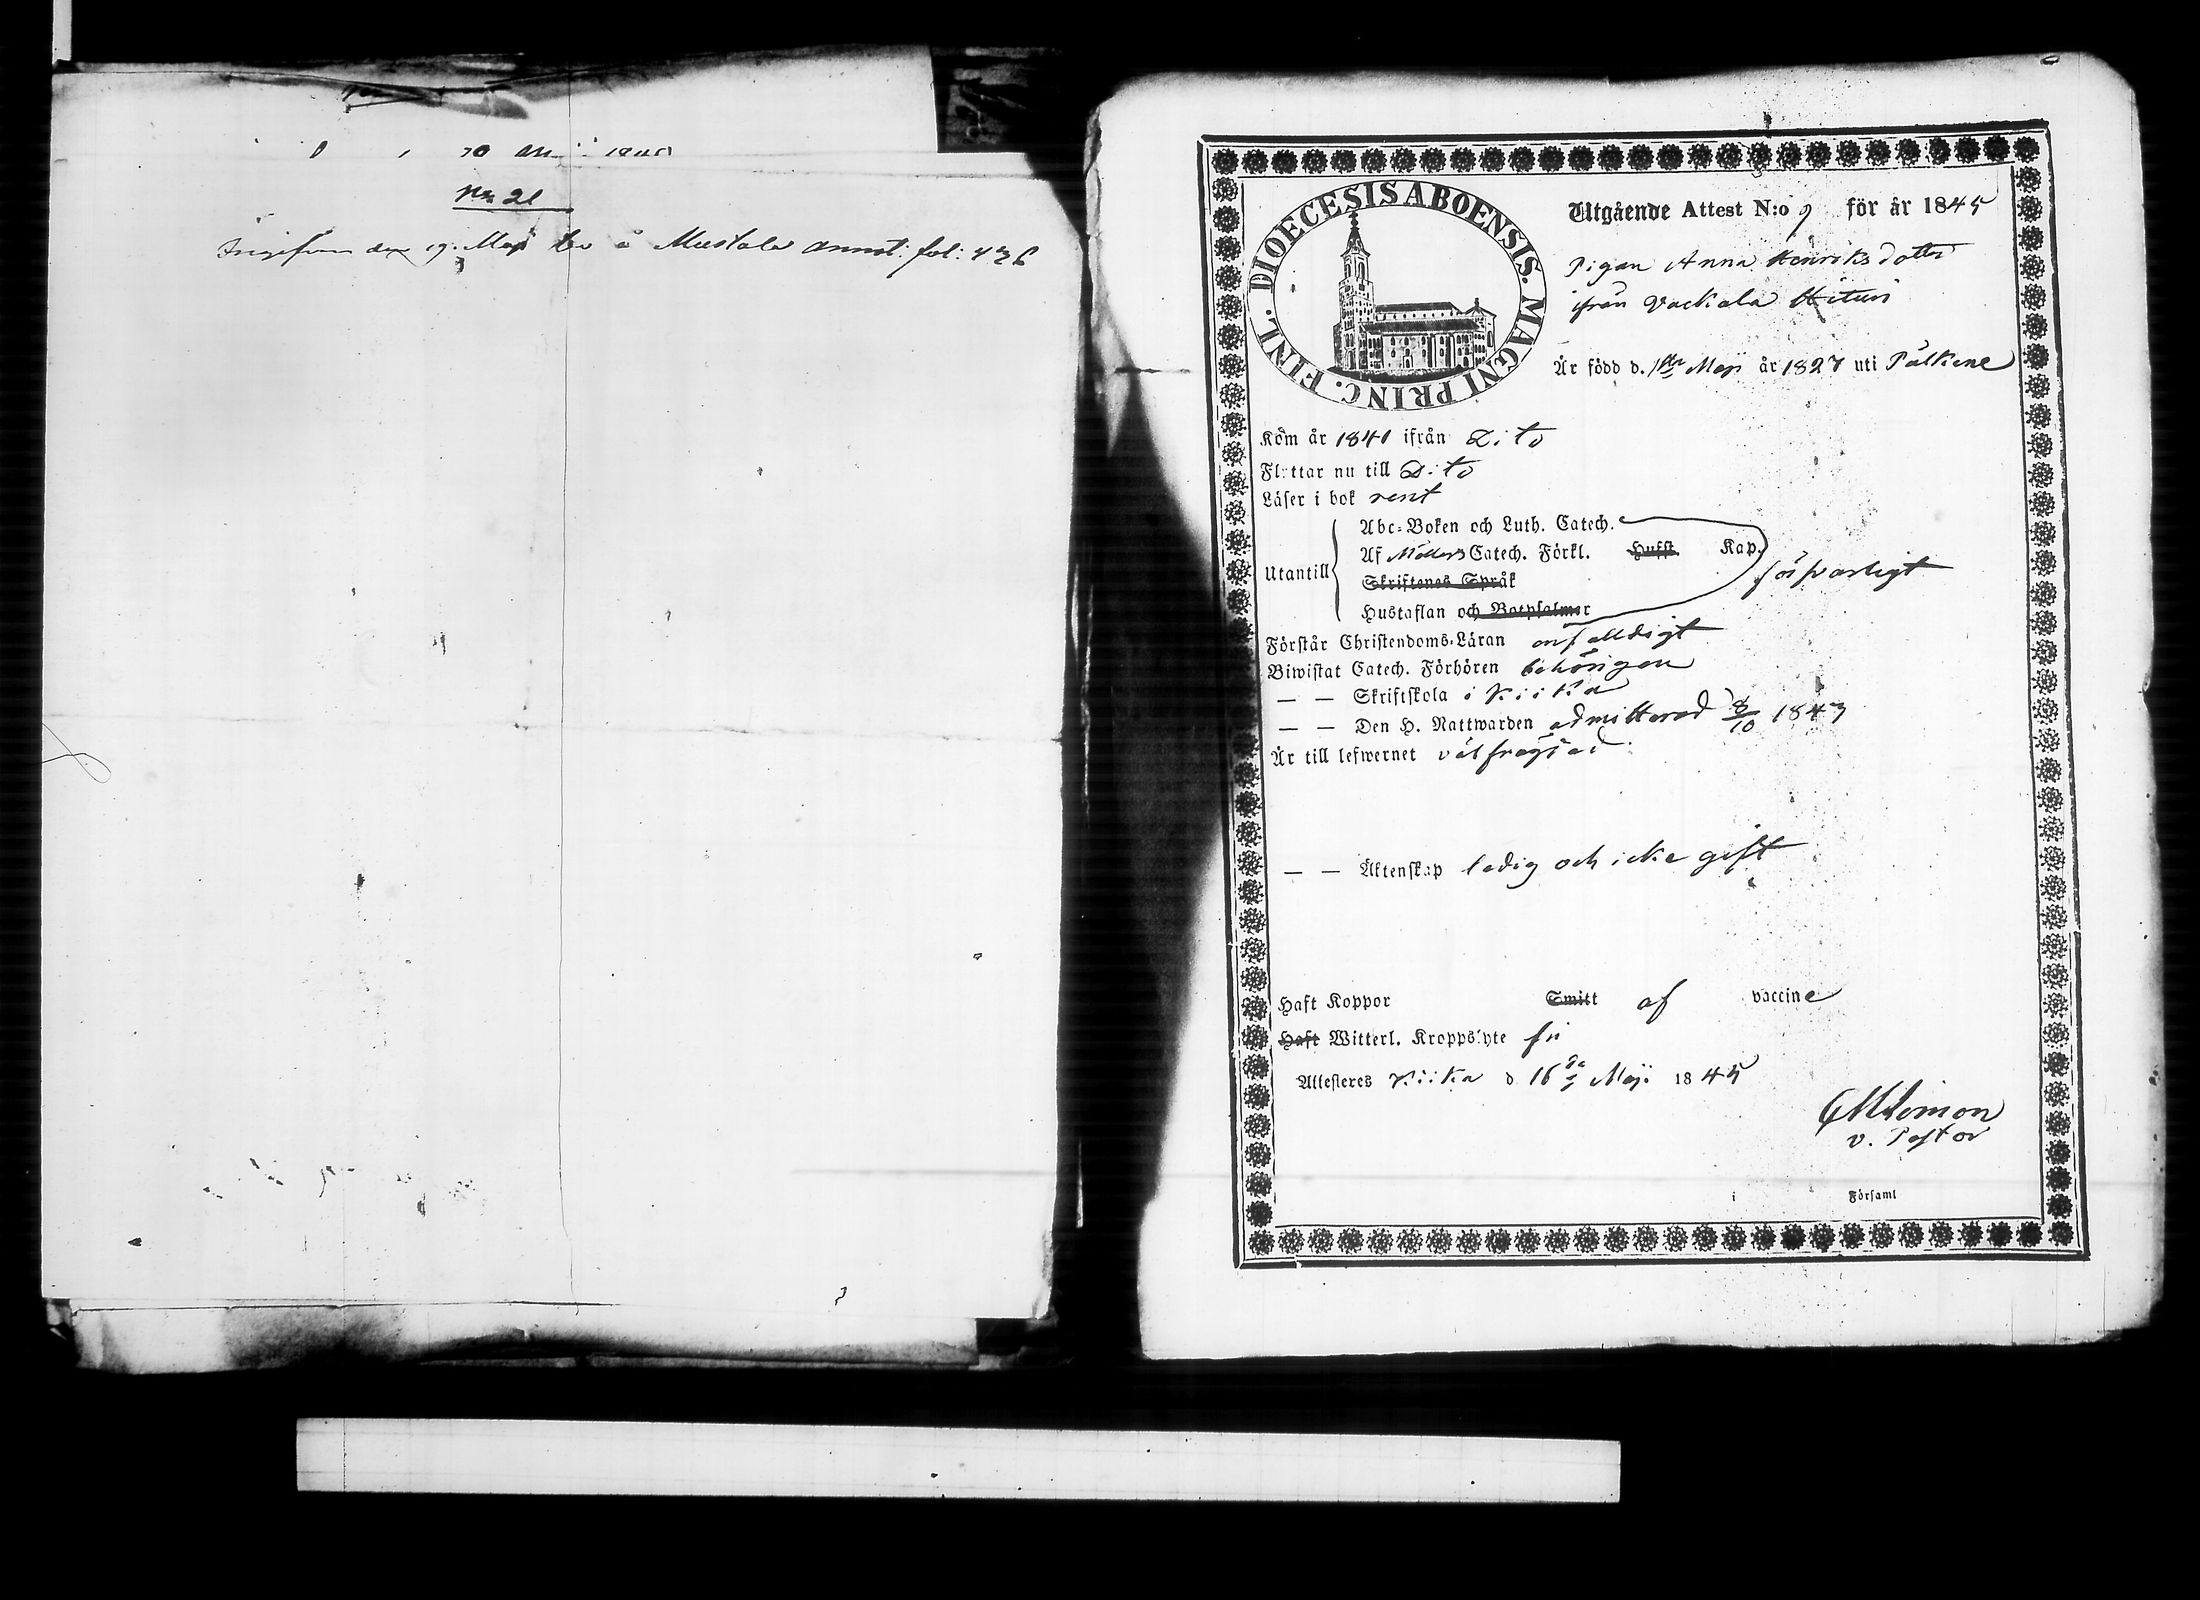 No 21
den 19 Maji å Mustala annot. fol: 436
DIOECESIS ABOENSIS. MAGNI PRINC. FINL.
Utgående Attest N:o 9 för år 1845
Pigan Anna Henriksdotter
ifrån Vackala Hituri
Är född d. 1sta Maji år 1827 uti Pälkene
Kom år 1841 ifrån Dito
Flyttar nu till Dito
Läser i bok rent
Utantill
Abc-Boken och Luth. Catech.
Af Möllers Catech. Förkl. Hufst. Kap.
Skriftenes Språk
Hustaflan och Botpsalmer
försvarligt
Förstår Christendoms-Läran enfalldigt
Biwistat Catech. Förhören behörigen
— — Skriftskola i Kiika
— — Den H. Nattwarden admitterad 8/10 1843
Är till lefwernet välfrägdad
— — Äktenskap ledig och icke gift
Haft Koppor Smitt af vaccine
Haft Witterl. Kroppslyte fri
Attesteres Kiika d 16de Maji 1845
v. Pastor
i Församl